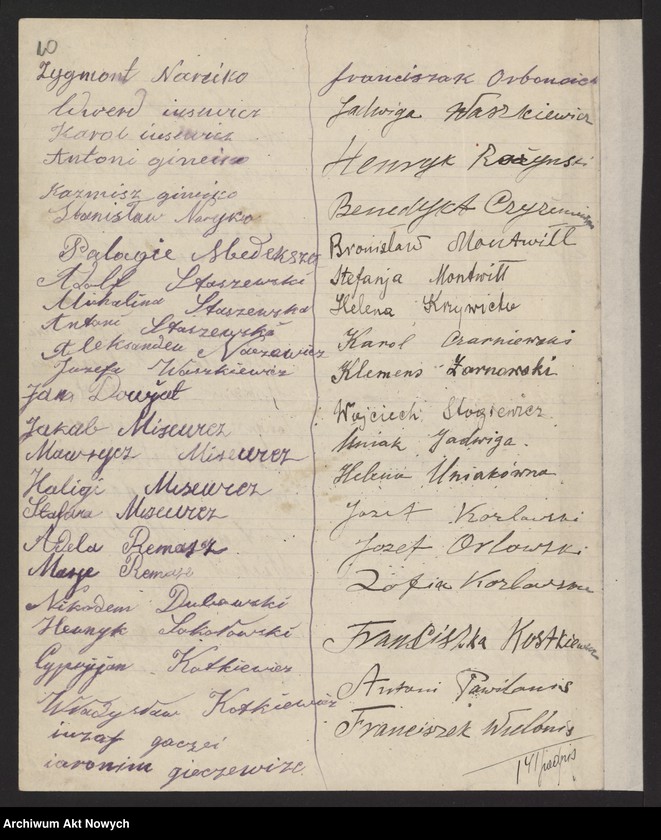 10
Zygmont Narciko
Karol iusewicz
Antoni gineiko
Kazmisz ginejko
Stanisław Naryko
Palagie
Adolf Staszewski
Mihalina Staszewska
Antoni Staszewski
Aleksander Naczewicz
Jozefa Waszkiewicz
Jan Dowjat
Jakab Misewicz
Mawrycz Misewicz
Haligi Misewicz
Stafana Misewicz
Adela Remasz
Marje Remasz
Nikodem Dubawski
Henryk Sokołowski
Cypryjan Kotkiewicz
Władysław Kotkiewicz
iuzaf gaczei
iaronim gieczewicz
Franciszak Orbonaich
Jadwiga Waszkiewicz
Henryk Rożynski
Benedykt
Bronisław Montwiłł
Stefanja Montwiłł
Helena Krzywicka
Karol Czarniewski
Klemens Żarnowski
Wojciech Stogiewicz
Uniak Jadwiga.
Helena Uniakówna
Jozef Kozłowski
Jozef Orłowski
Zofia Kozłowska
Franciszka Kostkiewicz
Antoni Pawilonis
Franciszek Wielonis
141 podpis
Archiwum Akt Nowych